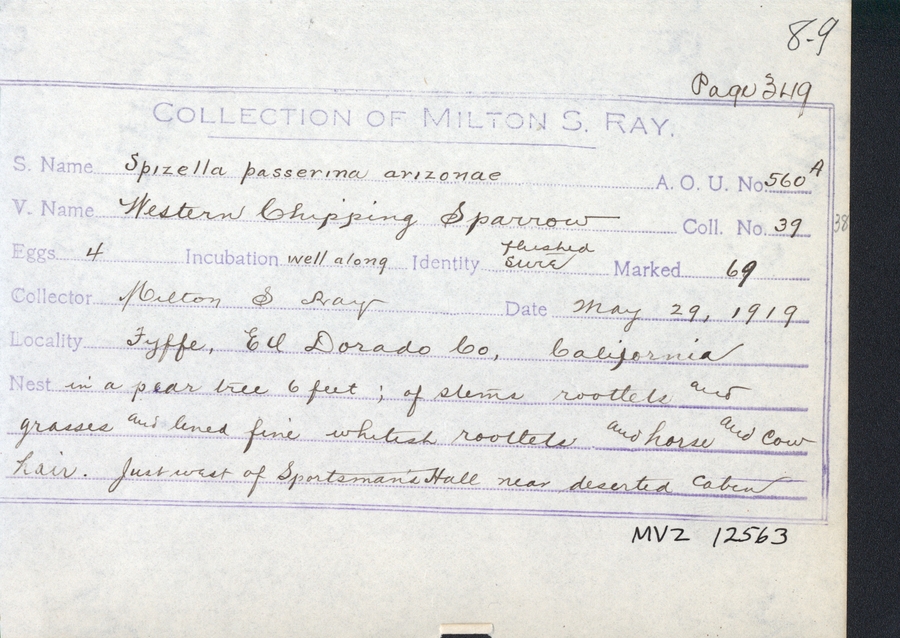 8-9
Page 349
COLLECTION OF MILTON S. RAY.
S. Name Spizella passerina arizonae A. O. U. No. 560 A
V. Name Western Chipping Sparrow Coll. No. 39 38
Eggs 4 Incubation well along Identity flushed sure Marked 69
Collector Milton S Ray Date May 29, 1919
Locality Fyffe, El Dorado Co, California
Nest in a pear tree 6 feet ; of stems rootlets and
grasses and lined fine whitish rootlets and horse and cow
hair. Just west of Sportsman's Hall near deserted cabin
MVZ 12563